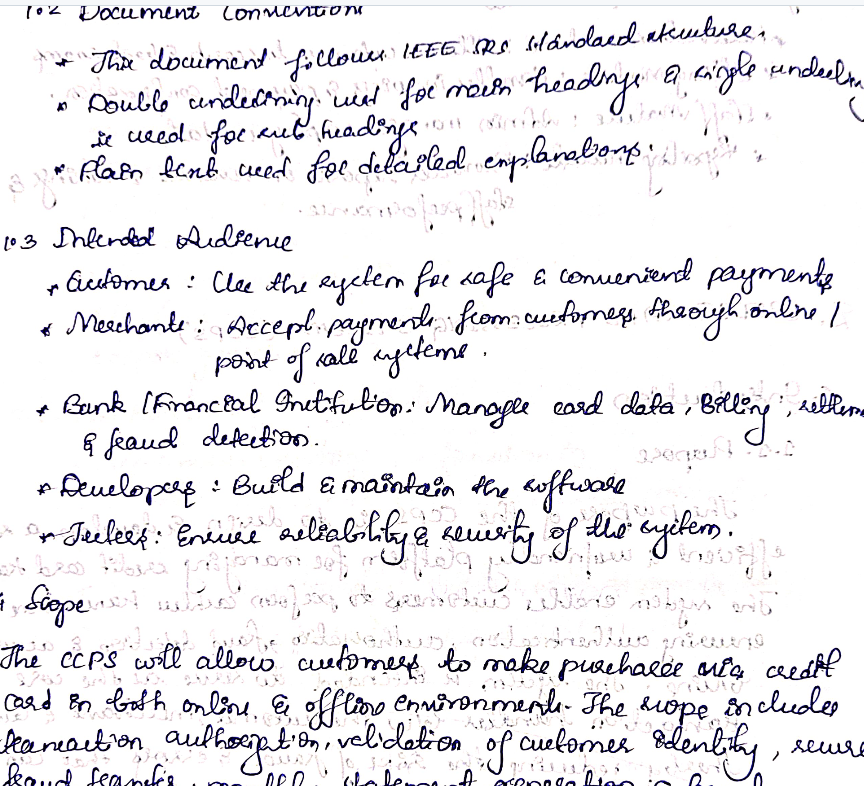 1.2 Document Convention
* This document follows IEEE SRS standard structure.
* Double underlining used for main headings & single underlin
is used for sub headings
* Plain text used for detailed explanations.
1.3 Intended Audience
* Customer : Use the system for safe & convenient payments
* Merchants : Accept payments from customers through online /
point of sale systems.
* Bank / Financial Institution : Manage card data, Billing, settlem
& fraud detection.
* Developers : Build & maintain the software
* Testers : Ensure reliability & security of the system.
Scope
The CCPS will allow customers to make purchases via credit
card in both online & offline environments. The scope includes
transaction authorization, validation of customer identity, secure
fraud transfer, statement generation